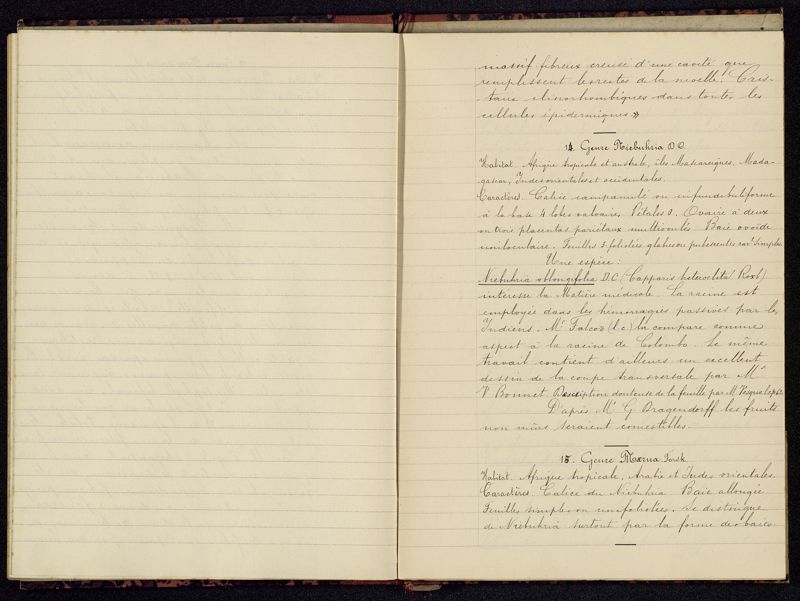 massif fibreux creusé d'une cavité que
remplissent les restes de la moelle. Cris-
taux clinorhombiques dans toutes les
cellules épidermiques »
14. Genre Niebuhria D.C.
Habitat. Afrique tropicale et australe, îles Mascareignes, Mada-
gascar, Indes orientales et occidentales.
Caractères. Calice campanulé ou infundibuliforme
à la base 4 lobes valvaires. Pétales 0. Ovaire à deux
ou trois placentas pariétaux multiovulés. Baie ovoïde
uniloculaire. Feuilles 3-foliolées, glabres ou pubescentes rart simples
Une espèce:
Niebuhria oblongifolia D.C. (Capparis heteroclita Roxb)
intéresse la Matière médicale. La racine est
employée dans les hémorragies passives par les
Indiens. Mr Falcoz (l.c) la compare comme
aspect à la racine de Colombo. Le même
travail contient d'ailleurs un excellent
dessin de la coupe transversale par Mr
V. Bonnet. Description douteuse de la feuille par M. Vesque
D'après Mr G. Dragendorff les fruits
non mûrs seraient comestibles.
15. Genre Mærua Forsk
Habitat. Afrique tropicale, Arabie et Indes orientales.
Caractères. Calice du Niebuhria. Baie allongée
Feuilles simples ou unifoliolées. Se distingue
de Niebuhria surtout par la forme des baies.